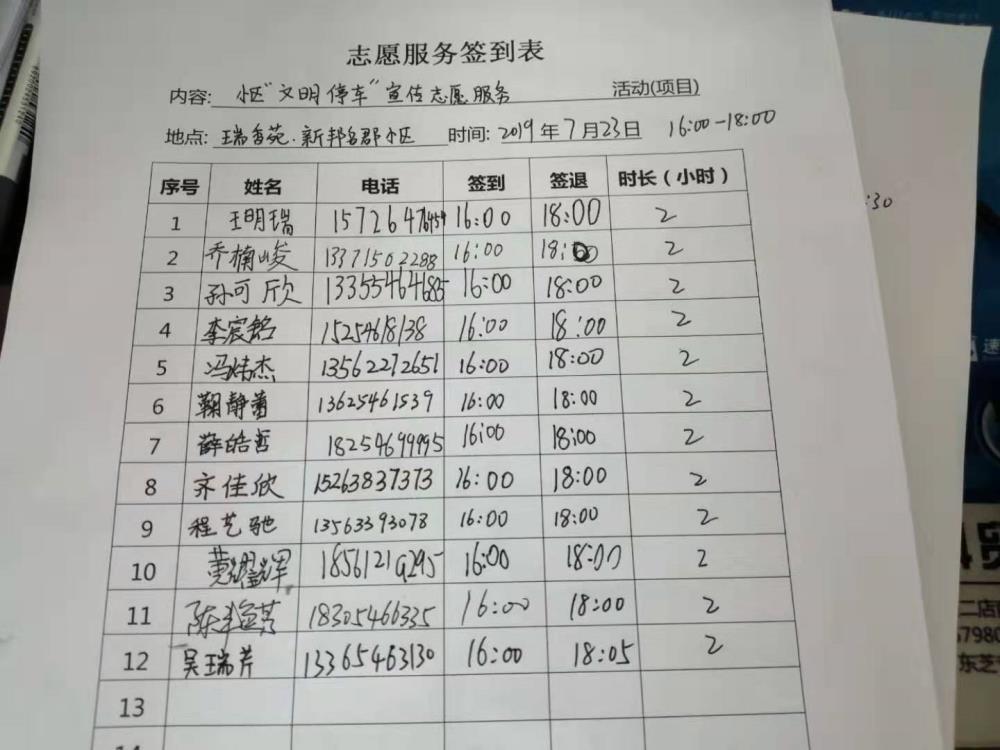 志愿服务签到表
内容: 小区"文明停车"宣传志愿服务 活动(项目)
地点: 瑞香苑.新邦名郡小区 时间: 2019年7月23日 16:00-18:00
序号 姓名 电话 签到 签退 时长(小时)
1 王明瑞 15726476454 16:00 18:00 2
2 乔楠峻 13371502288 16:00 18:00 2
3 孙可欣 13355464685 16:00 18:00 2
4 李宸铭 1525468138 16:00 18:00 2
5 冯炜杰 13562272651 16:00 18:00 2
6 鞠静蕾 13625461539 16:00 18:00 2
7 薛皓哲 18254699995 16:00 18:00 2
8 齐佳欣 15263837373 16:00 18:00 2
9 程艺驰 13563393078 16:00 18:00 2
10 18561219295 16:00 18:00 2
11 18305466335 16:00 18:00 2
12 吴瑞芹 13365463130 16:00 18:05 2
13
:30
速
二店
67980
东芝